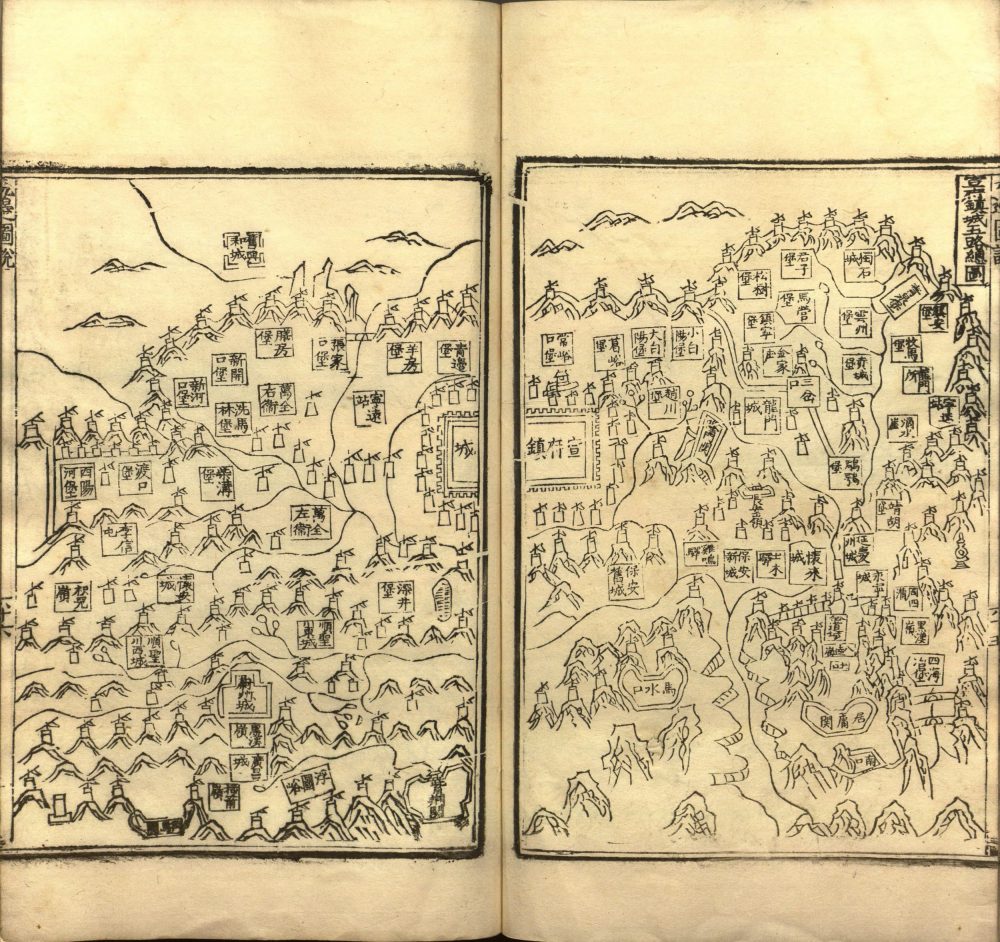 宣府鎮城五路總圖
獨石城
君子堡
松樹堡
馬營堡
鎮安堡
雲州堡
赤城堡
鎮安堡
牧馬堡
龍門所
寧遠站
滴水崖
金家庄
三岔口
龍門城
小白陽堡
大白陽堡
葛峪堡
常峪口
趙川堡
宣府鎮城
鵰鶚堡
長安嶺
靖胡堡
延慶州城
永寧城
周四溝
黑漢嶺
四海冶堡
懷來城
土木驛
保安新城
雞鳴驛
保安舊城
馬水口
居庸關
南口
青邊堡
羊房堡
張家口堡
膳房堡
新開口堡
新河口堡
萬全右衛
洗馬林堡
寧遠站
興和城
西陽河堡
渡口堡
柴溝堡
萬全左衛
李信屯
深井堡
順聖川東城
順聖川西城
蔚州城
廣昌城
浮圖峪